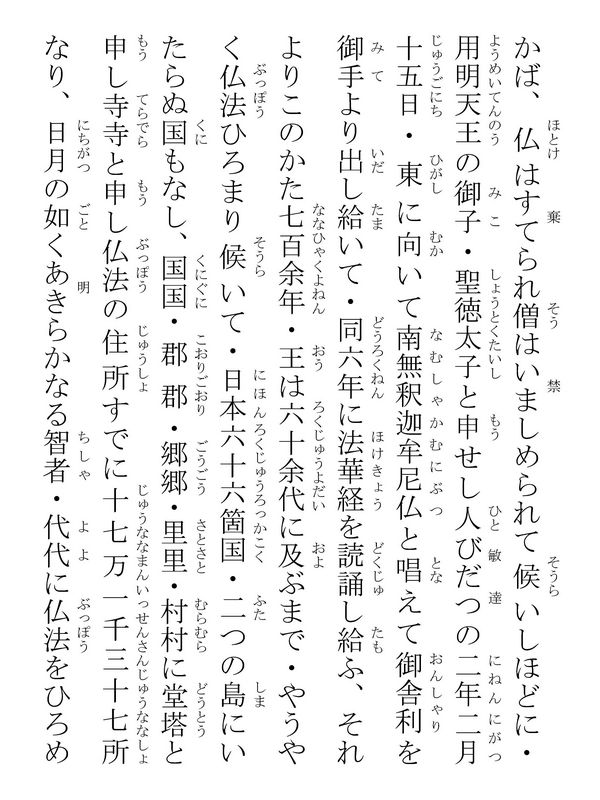 かば、仏はすてられ僧はいましめられて候いしほどに・
用明天王の御子・聖徳太子と申せし人びだつの二年二月
十五日・東に向いて南無釈迦牟尼仏と唱えて御舎利を
御手より出し給いて・同六年に法華経を読誦し給ふ、それ
よりこのかた七百余年・王は六十余代に及ぶまで・やうや
く仏法ひろまり候いて・日本六十六箇国・二つの島にい
たらぬ国もなし、国国・郡郡・郷郷・里里・村村に堂塔と
申し寺寺と申し仏法の住所すでに十七万一千三十七所
なり、日月の如くあきらかなる智者・代代に仏法をひろめ